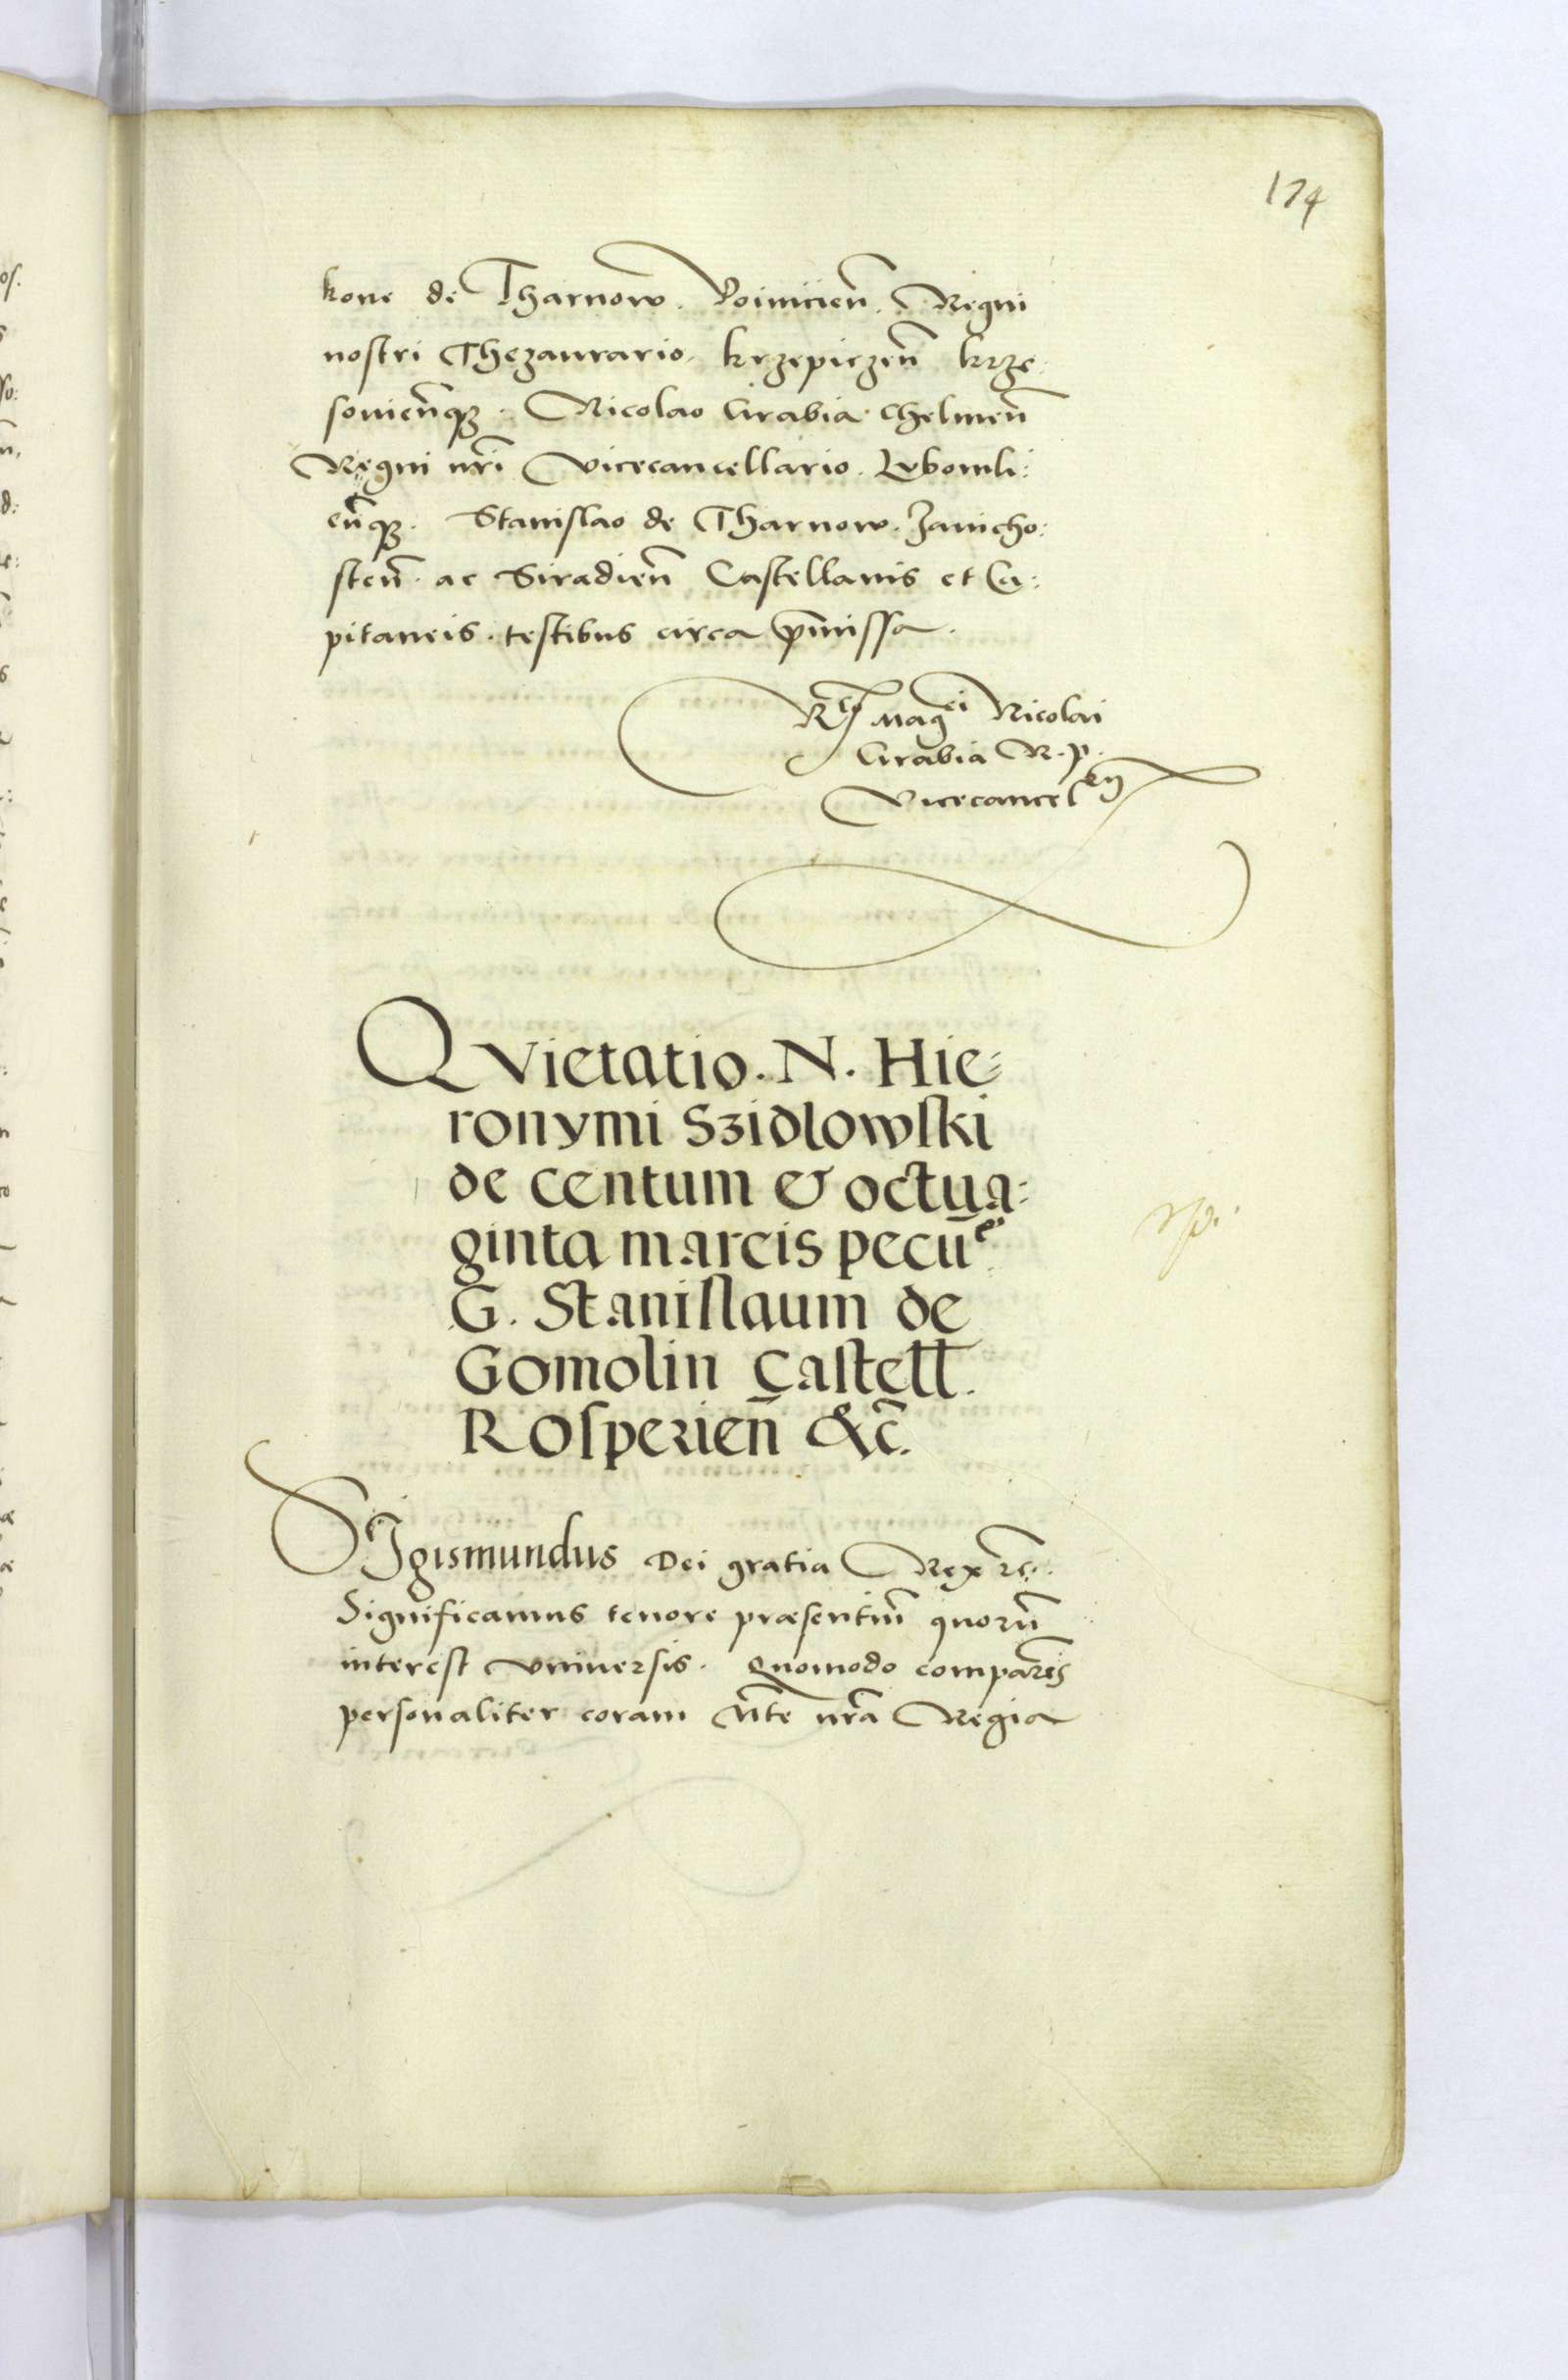 174
kone de Tharnow. Voinicieñ. Regni
nostri Thezaurario. krzepiczeñ krze:
sonieñqꝫ. Nicolao Grabia Chelmeñ
Regni nr̃i Vicecancellario. Lvbomli:
eñqꝫ. Stanislao de Tharnow. Zavicho:
steñ. ac Siradieñ Castellanis et Ca:
pitaneis. testibus circa p̃missa.
Rᶜᵒ Magᶜⁱ Nicolai
Grabia R. p.
Vicecancelˡʳⁱʲ
QVietatio. N. Hie:
ronymi Szidlowski
de centum & octua:
ginta marcis pecuñᵉ
G. Stanislaum de
Gomolin Castell.
Rosperieñ &c̃.
SIgismundus Dei gratia Rex ꝛc̃.
Significamus tenore præsentiũ quorũ
interest vniuersis. Quomodo comparẽs
personaliter coram M̃te nr̃a Regia